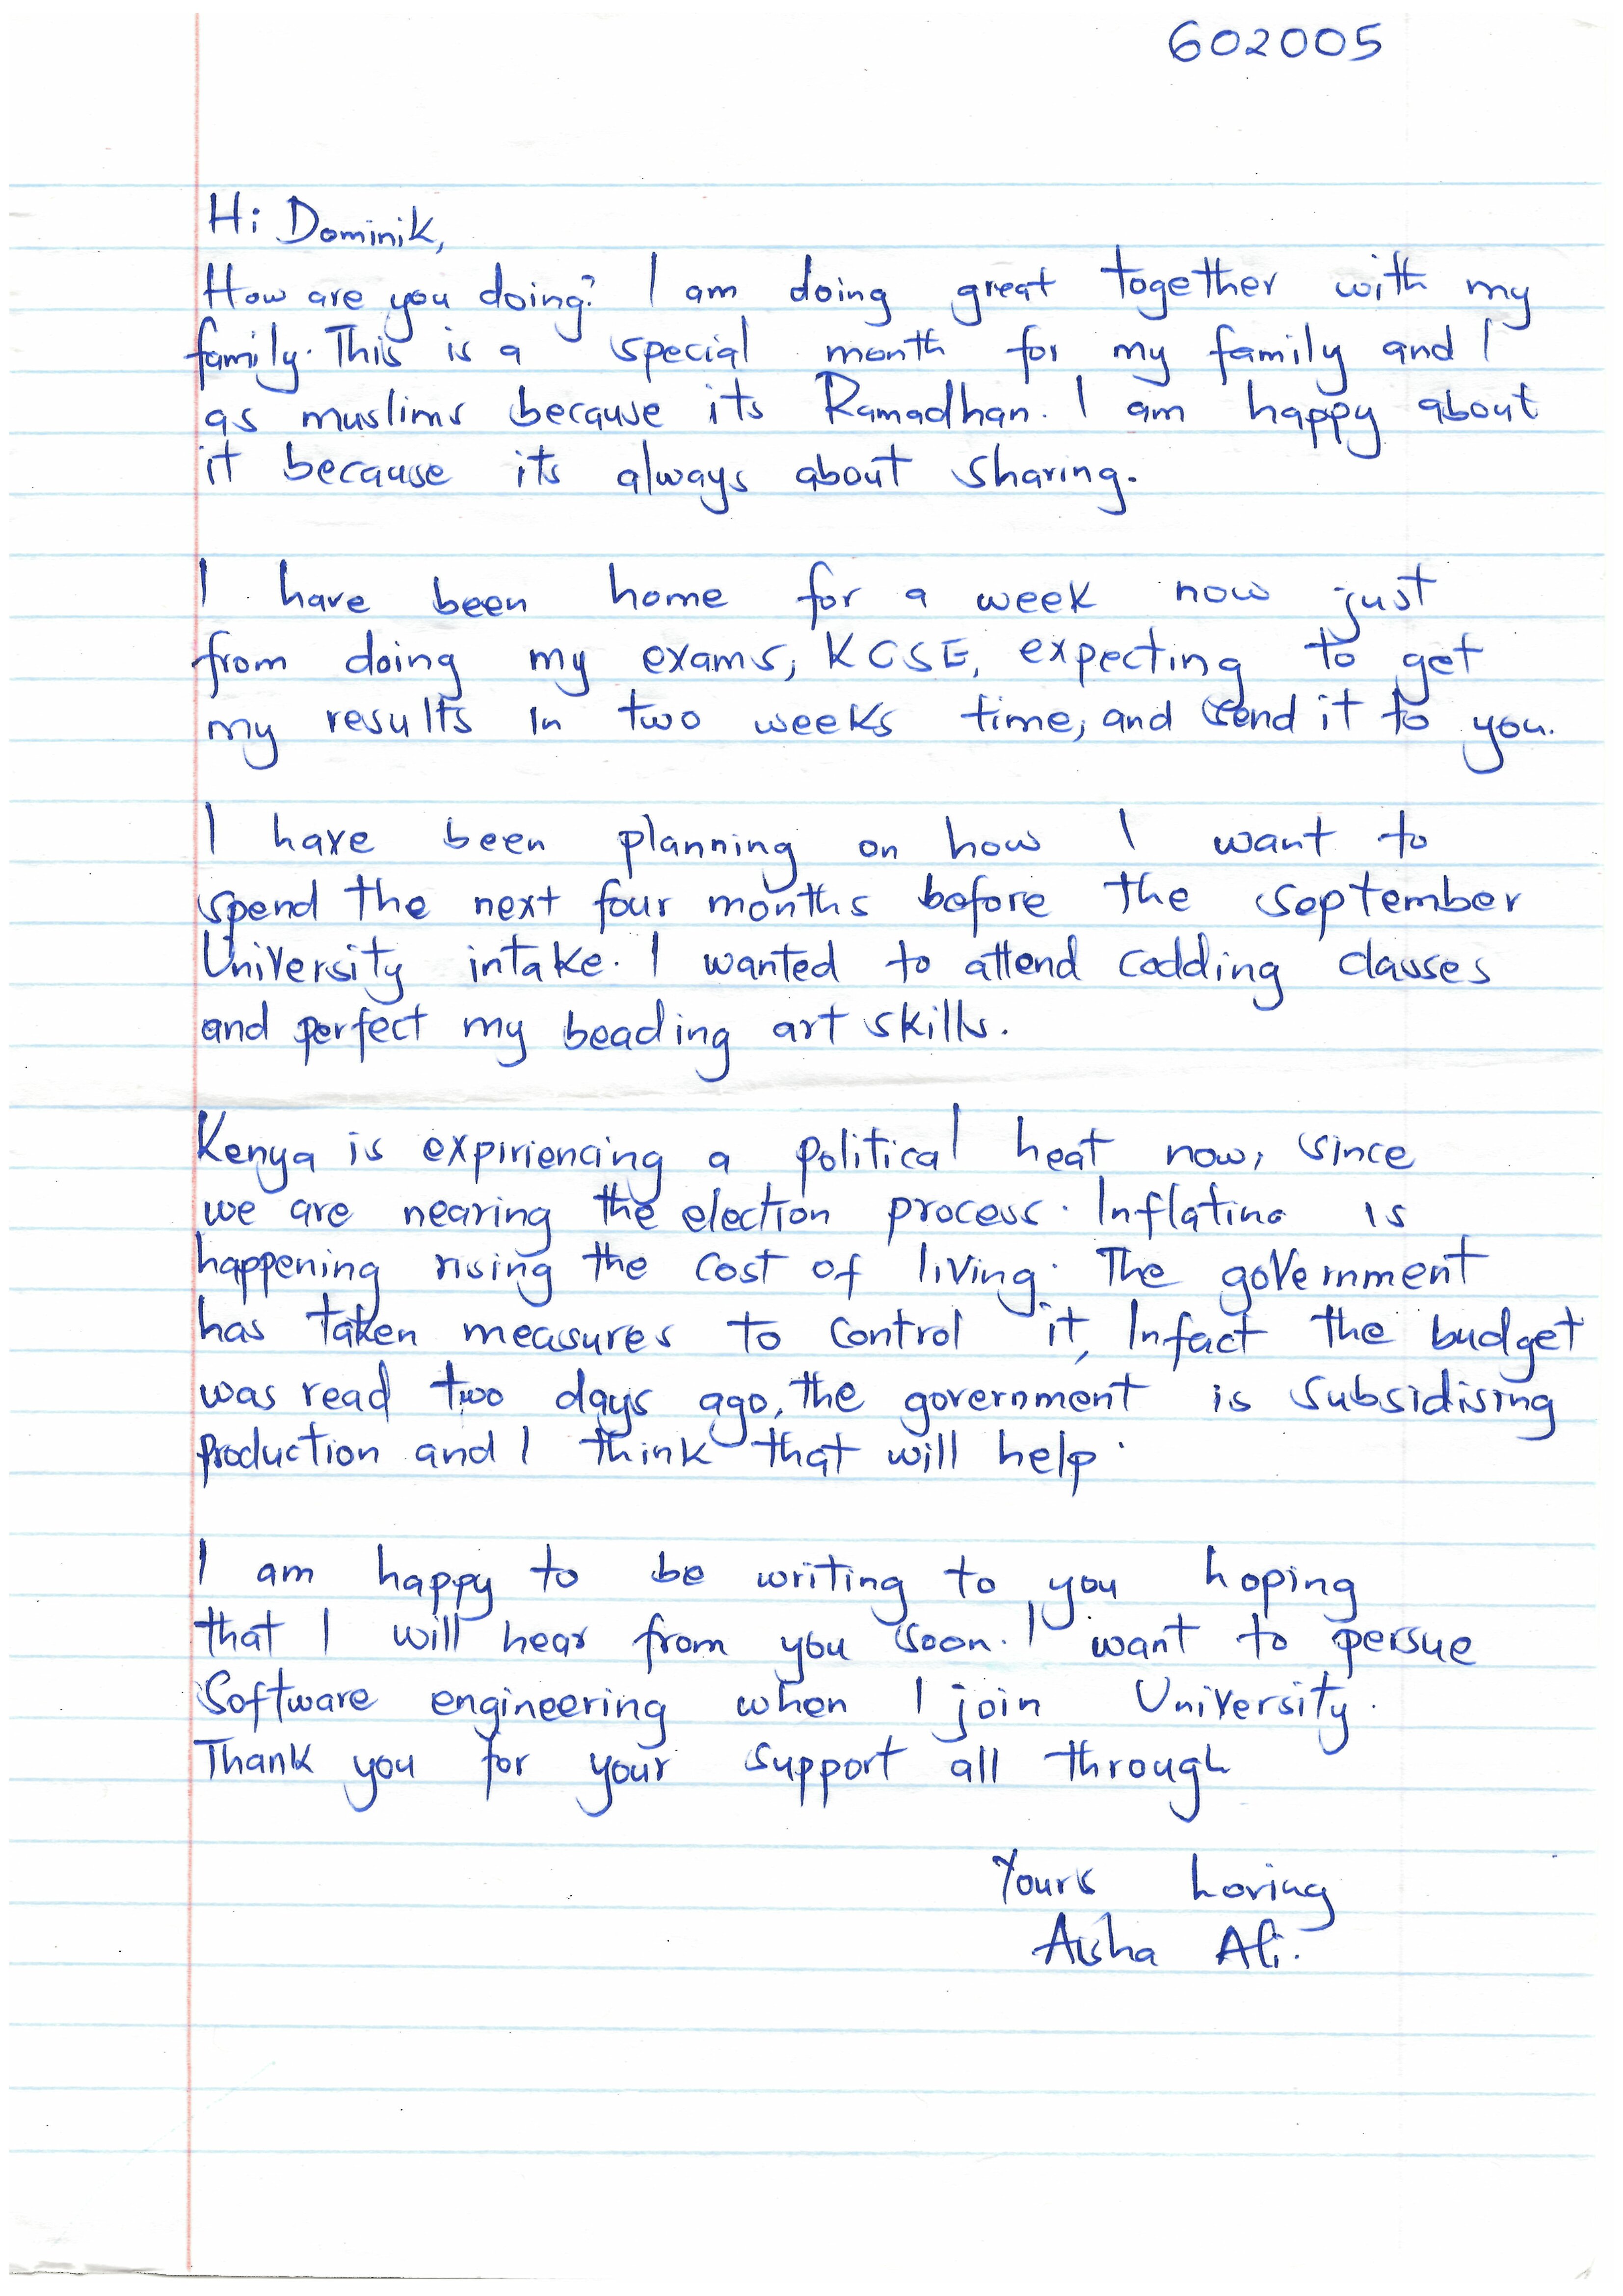 602005
Hi Dominik,
How are you doing? I am doing great together with my
family. This is a special month for my family and I
as muslims because its Ramadhan. I am happy about
it because its always about sharing.
I have been home for a week now just
from doing my exams, KCSE, expecting to get
my results in two weeks time, and send it to you.
I have been planning on how I want to
spend the next four months before the september
University intake. I wanted to attend codding classes
and perfect my beading art skills.
Kenya is expiriencing a political heat now, since
we are nearing the election process. Inflatino is
happening rising the cost of living. The government
has taken measures to control it, Infact the budget
was read two days ago, the government is subsidising
production and I think that will help.
I am happy to be writing to you hoping
that I will hear from you soon. I want to persue
Software engineering when I join University.
Thank you for your support all through
Yours Loving
Aisha Ali.